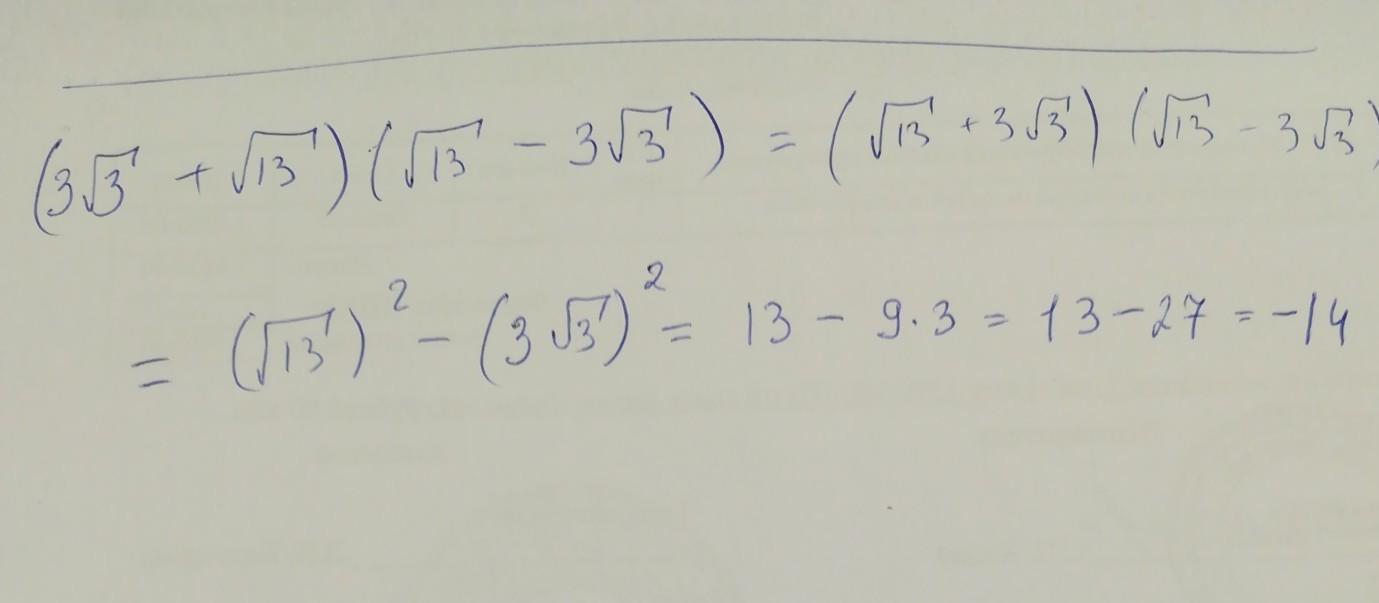 (3√3 + √13)(√13 − 3√3) = (√13 + 3√3)(√13 − 3√3)
= (√13)² − (3√3)² = 13 − 9·3 = 13 − 27 = −14